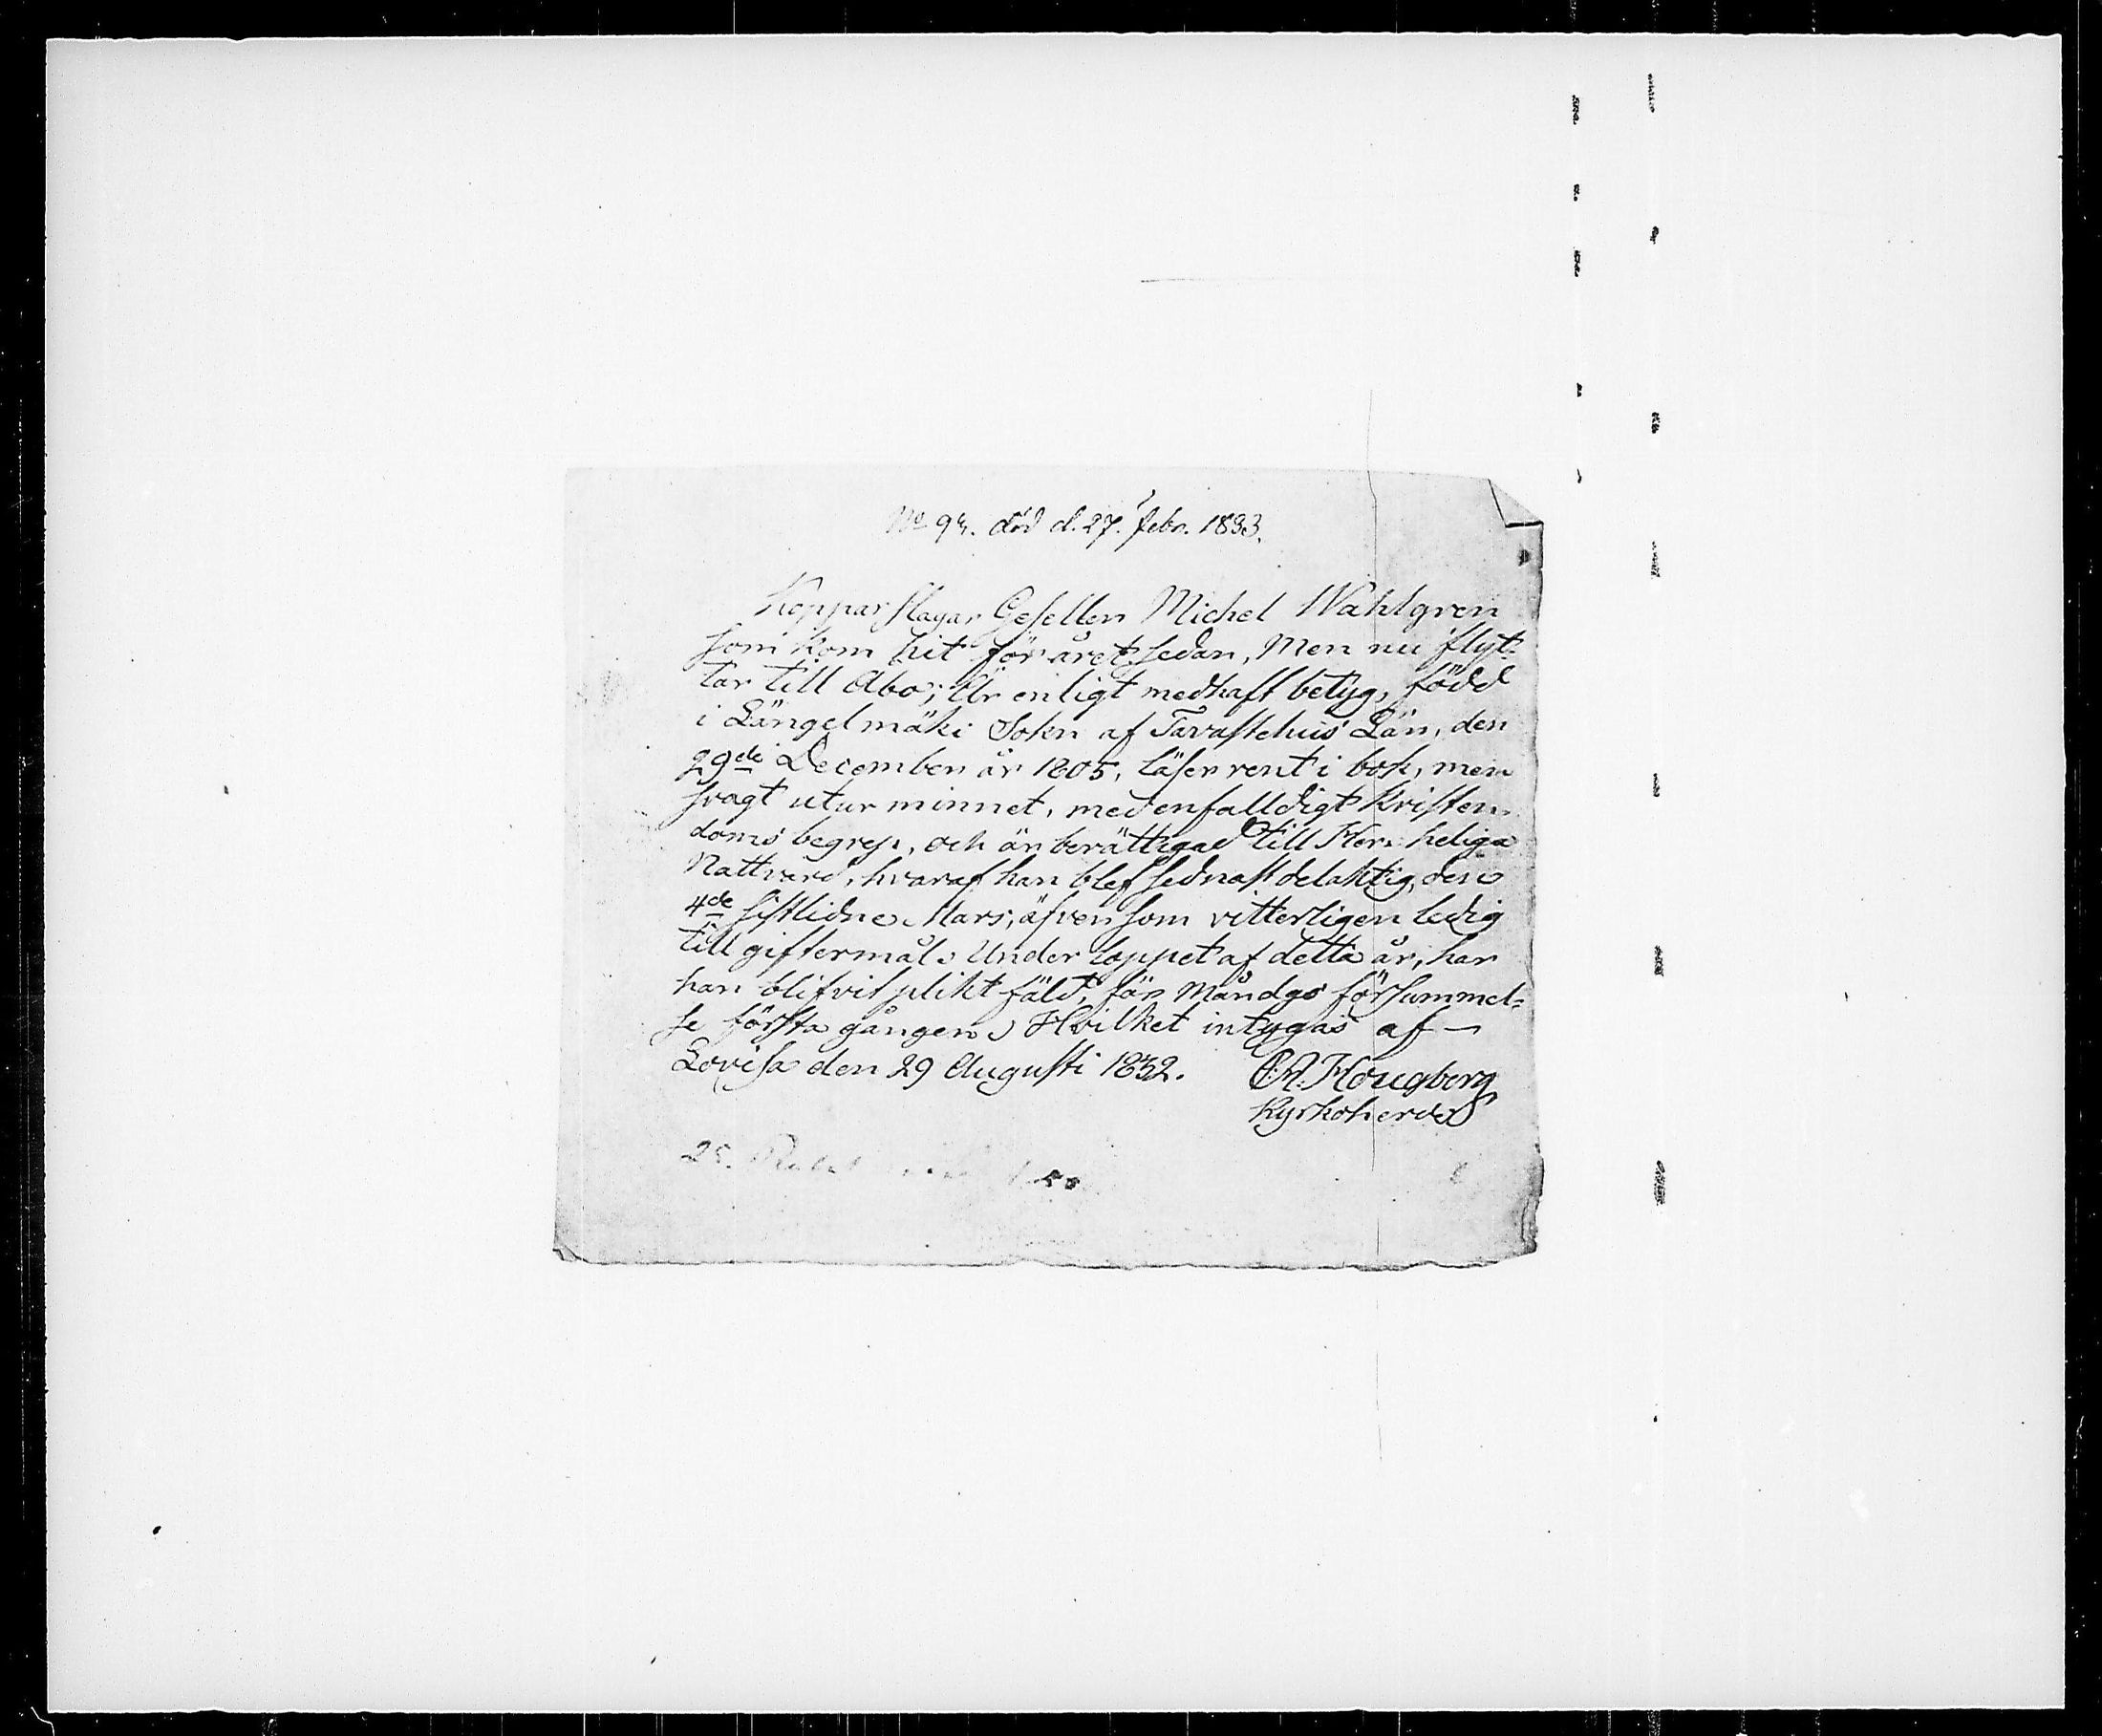 No 94. död d. 27. Febr. 1833.
Kopparslagar Gesellen Michel Wahlgren
som kom hit för året sedan, Men nu flyt-
tar till Åbo; Är enligt medhaft betyg, född
i Längelmäki Sokn af Tavastehus Län, den
29de December år 1805, läser rent i bok, men
svagt utur minnet, med enfalldigt Kristen-
doms begrep, och är berättigad till Herr. heliga
Nattvard, hvaraf han blef sednast delaktig, den
4de sistlidne Mars, äfven som vitterligen ledig
till giftermål. Under loppet af detta år, har
han blifvit pliktfäld, för Måndgs försummel-
se första gången. Hvilket intygas af —
Lovisa den 29 Augusti 1832. C.A. Hougberg
Kyrkoherde
25.